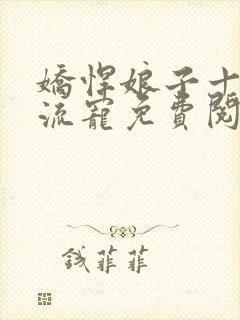 嬌悍娘子十
流寵免費閱
錢菲菲